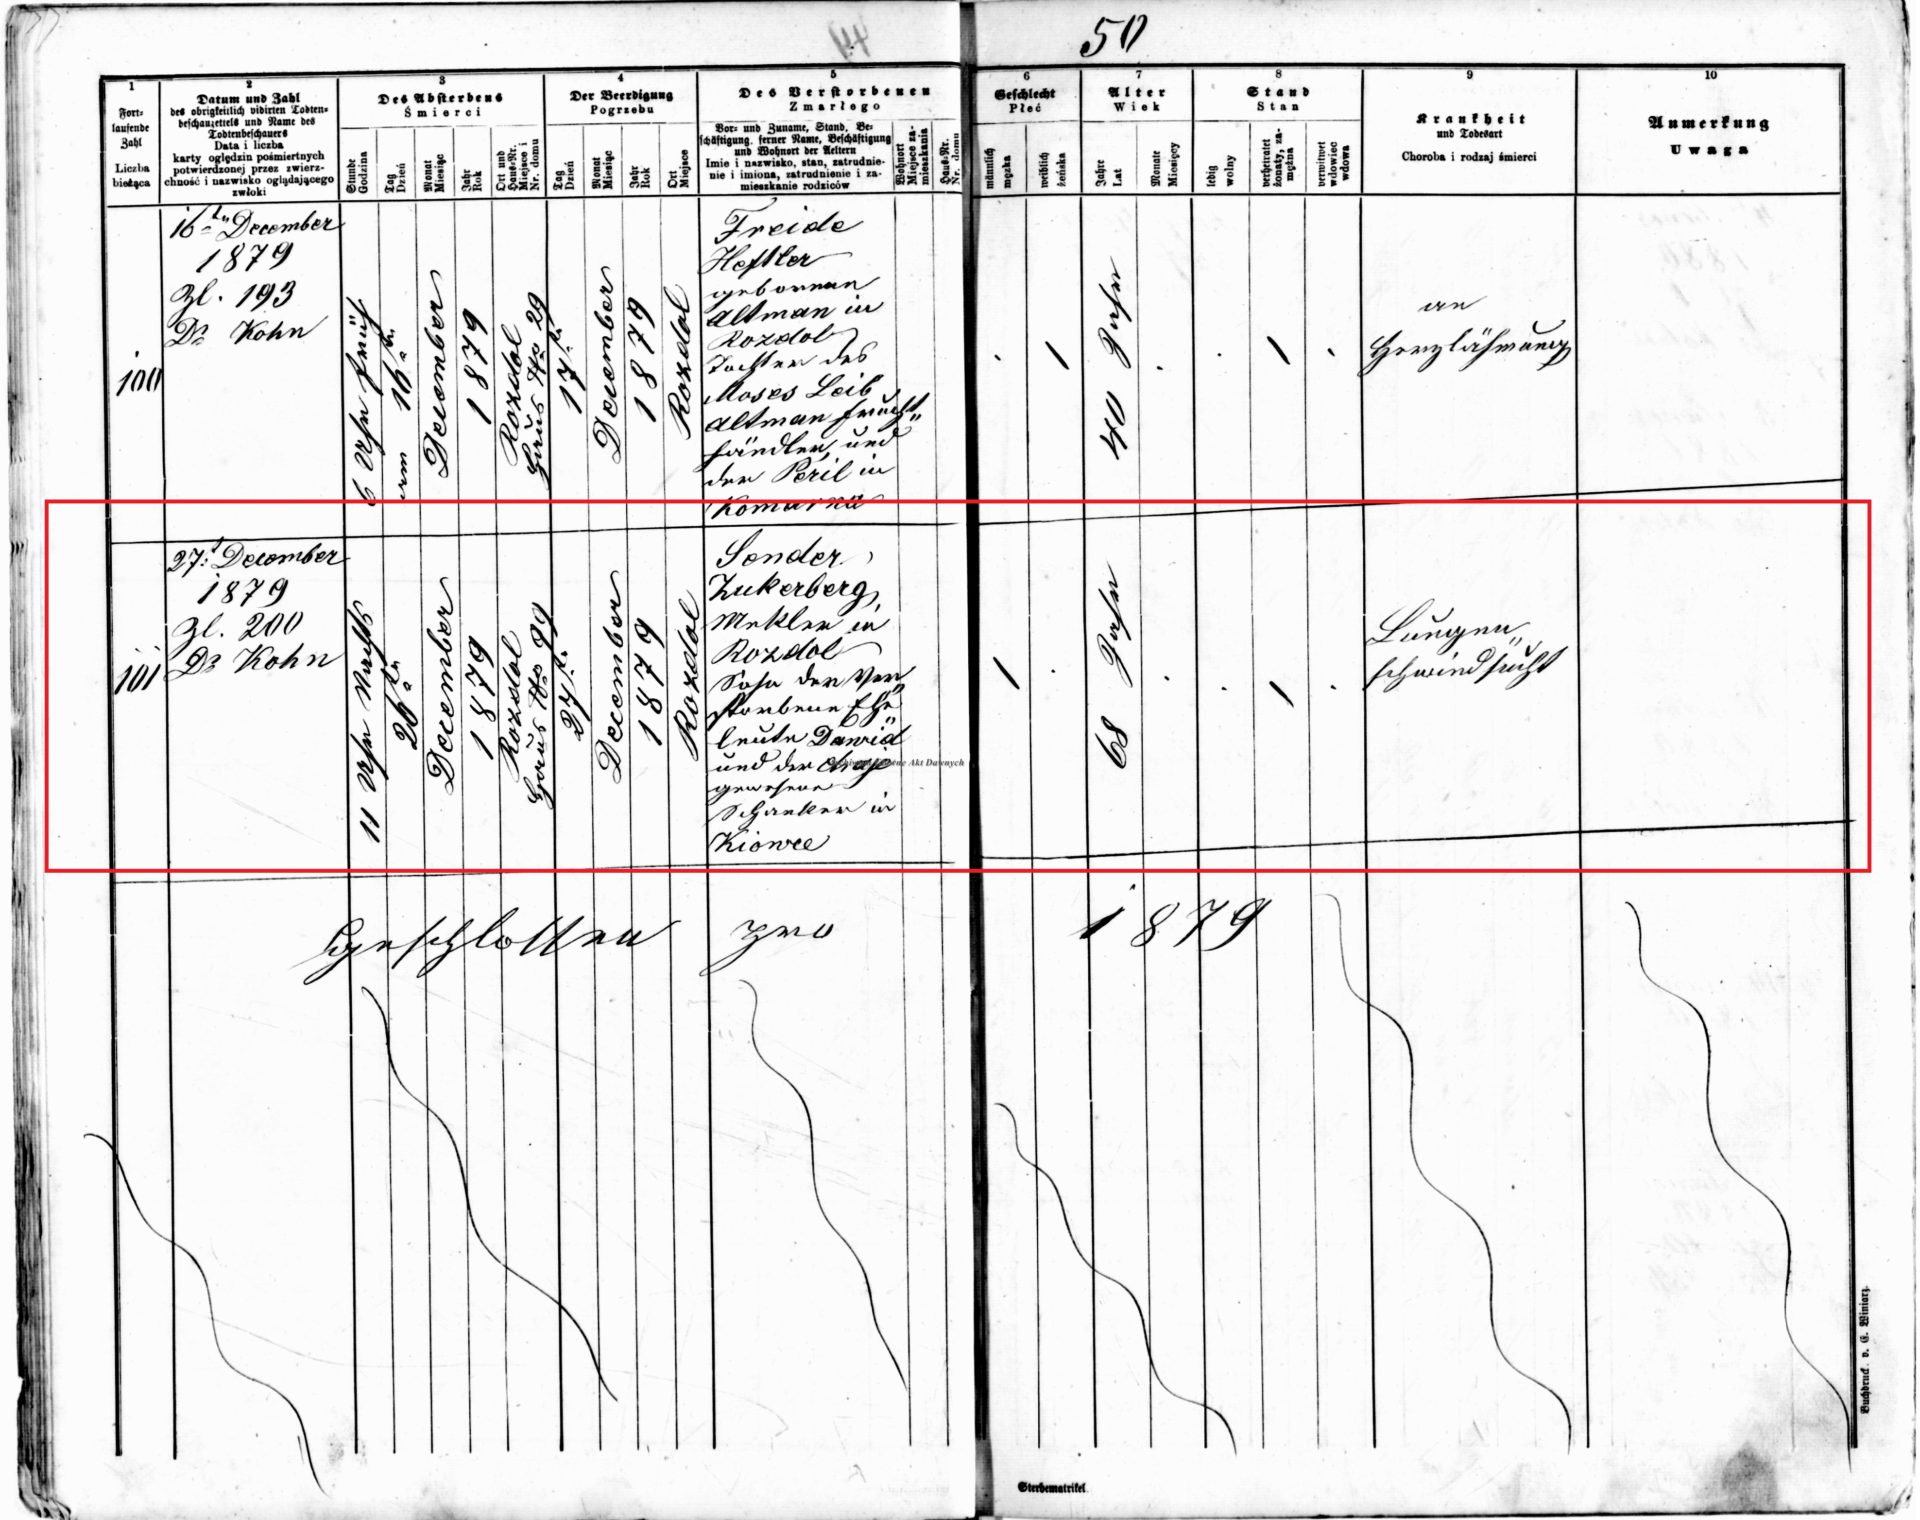 50
1
2
3
4
5
6
7
8
9
10
Fort-
laufende
Zahl
Liczba
bieżąca
Datum und Zahl
des obrigkeitlich vidirten Todten-
beschauzettels und Name des
Todtenbeschauers
Data i liczba
karty oględzin pośmiertnych
potwierdzonej przez zwierz-
chność i nazwisko oglądającego
zwłoki
Des Absterbens
Śmierci
Stunde
Godzina
Tag
Dzień
Monat
Miesiąc
Jahr
Rok
Ort und
Haus-Nr.
Miejsce i
Nr. domu
Der Beerdigung
Pogrzebu
Tag
Dzień
Monat
Miesiąc
Jahr
Rok
Ort
Miejsce
Des Verstorbenen
Zmarłego
Vor- und Zuname, Stand, Be-
schäftigung, ferner Name, Beschäftigung
und Wohnort der Aeltern
Imie i nazwisko, stan, zatrudnie-
nie i imiona, zatrudnienie i za-
mieszkanie rodziców
Wohnort
Miejsce za-
mieszkania
Haus-Nr.
Nr. domu
Geschlecht
Płeć
männlich
męzka
weiblich
żeńska
Alter
Wiek
Jahre
Lat
Monate
Miesięcy
Stand
Stan
ledig
wolny
verheiratet
żonaty, za-
mężna
verwitwet
wdowiec
wdowa
Krankheit
und Todesart
Choroba i rodzaj śmierci
Anmerkung
Uwaga
100
16tn December
1879
Zl. 193
Dr Kohn
6 Uhr früh
am 16tn
December
1879
Rozdol
Haus No 29
17tn
December
1879
Rozdol
Freide
Heftler
geborene
Altman in
Rozdol
Tochter des
Moses Leib
Altman Frucht"
händler, und
der Peril in
Komarno
1
40 Jahre
1
an
Herzlähmung
101
27t December
1879
Zl. 200
Dr Kohn
11 Uhr Nachts
26tn
December
1879
Rozdol
Haus No 99
27tn
December
1879
Rozdol
Sender
Zukerberg,
Mekler in
Rozdol
Sohn der Ver"
storbene Ehe"
leute Dawid
und der
gewesene
Schanker in
Kiowce
1
68 Jahre
1
Lungen"
schwindsucht
Geschlossen pro 1879
Sterbematrikel.
Buchdruck. v. E. Winiarz.